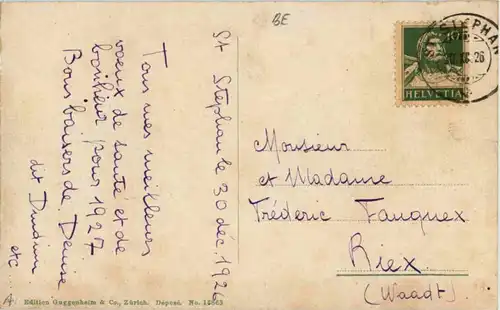 BE
St Stephan le 30 déc 1926
Tous mes meilleurs
voeux de santé et de
bonheur pour 1927
Bons baisers de Denise
dit Dindine
etc...
STEPHAN
26
10
HELVETIA
Monsieur
et Madame
Fréderic Fauquex
Riex
(Waadt).
Edition Guggenheim & Co., Zürich. Deposé. No.